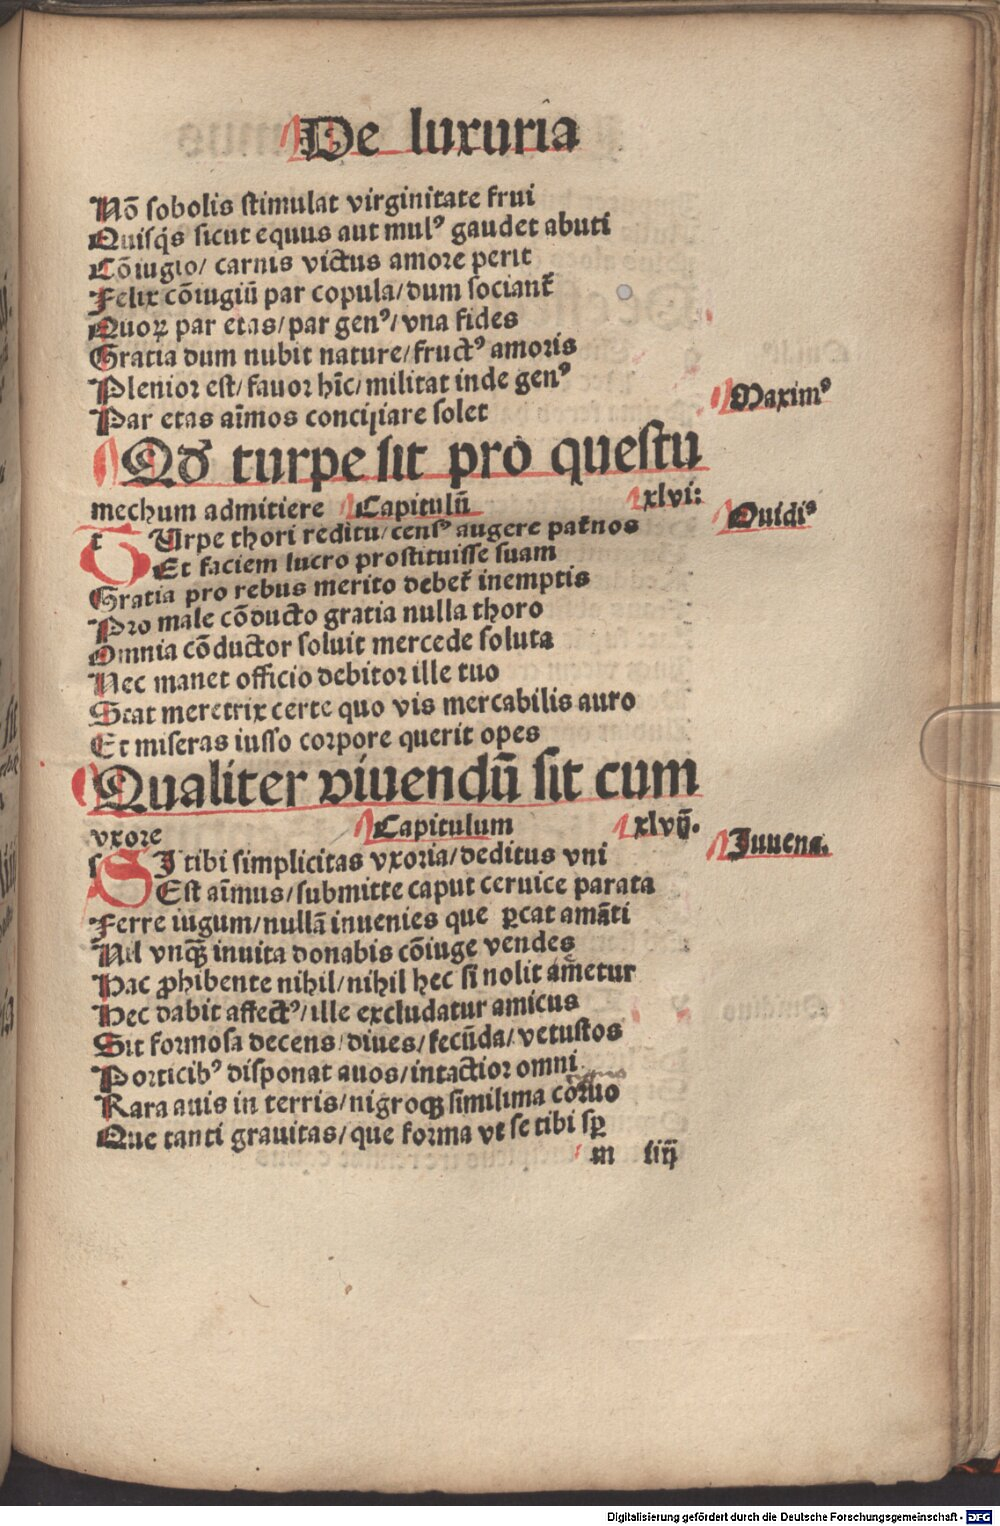 De luxuria
Nō sobolis stimulat virginitate frui
Quisq̃s sicut equus aut mulꝰ gaudet abuti
Cōiugio/ carnis victus amore perit
Felix cōiugiū par copula/dum sociant᷑
Quoꝝ par etas/par genꝰ/vna fides
Gratia dum nubit nature/fructꝰ amoris
Plenior est/fauor hīc/militat inde genꝰ
Maximꝰ
Par etas aīmos conciliare solet
Qd᷑ turpe sit pro questu
mechum admittere Capitulū xlvi:
Ouidiꝰ
t TUrpe thori reditu/censꝰ augere pat̄nos
Et faciem lucro prostituisse suam
Gratia pro rebus merito debet᷑ inemptis
Pro male cōducto gratia nulla thoro
Omnia cōductor soluit mercede soluta
Nec manet officio debitor ille tuo
Stat meretrix certe quo vis mercabilis auro
Et miseras iusso corpore querit opes
Qualiter viuendū sit cum
vxore Capitulum xlvij.
Iuuena.
s SI tibi simplicitas vxoria/deditus vni
Est aīmus/submitte caput ceruice parata
Ferre iugum/nullā inuenies que ꝑcat amāti
Nil vnqꝫ inuita donabis cōiuge vendes
Hac ꝓhibente nihil/nihil hec si nolit ametur
Hec dabit affectꝰ/ille excludatur amicus
Sit formosa decens/diues/fecūda/vetustos
Porticibꝰ disponat auos/intactior omni
Rara auis in terris/nigroqꝫ simillima coruo
Que tanti grauitas/que forma vt se tibi sꝑ
m iiij
Digitalisierung gefördert durch die Deutsche Forschungsgemeinschaft - DFG